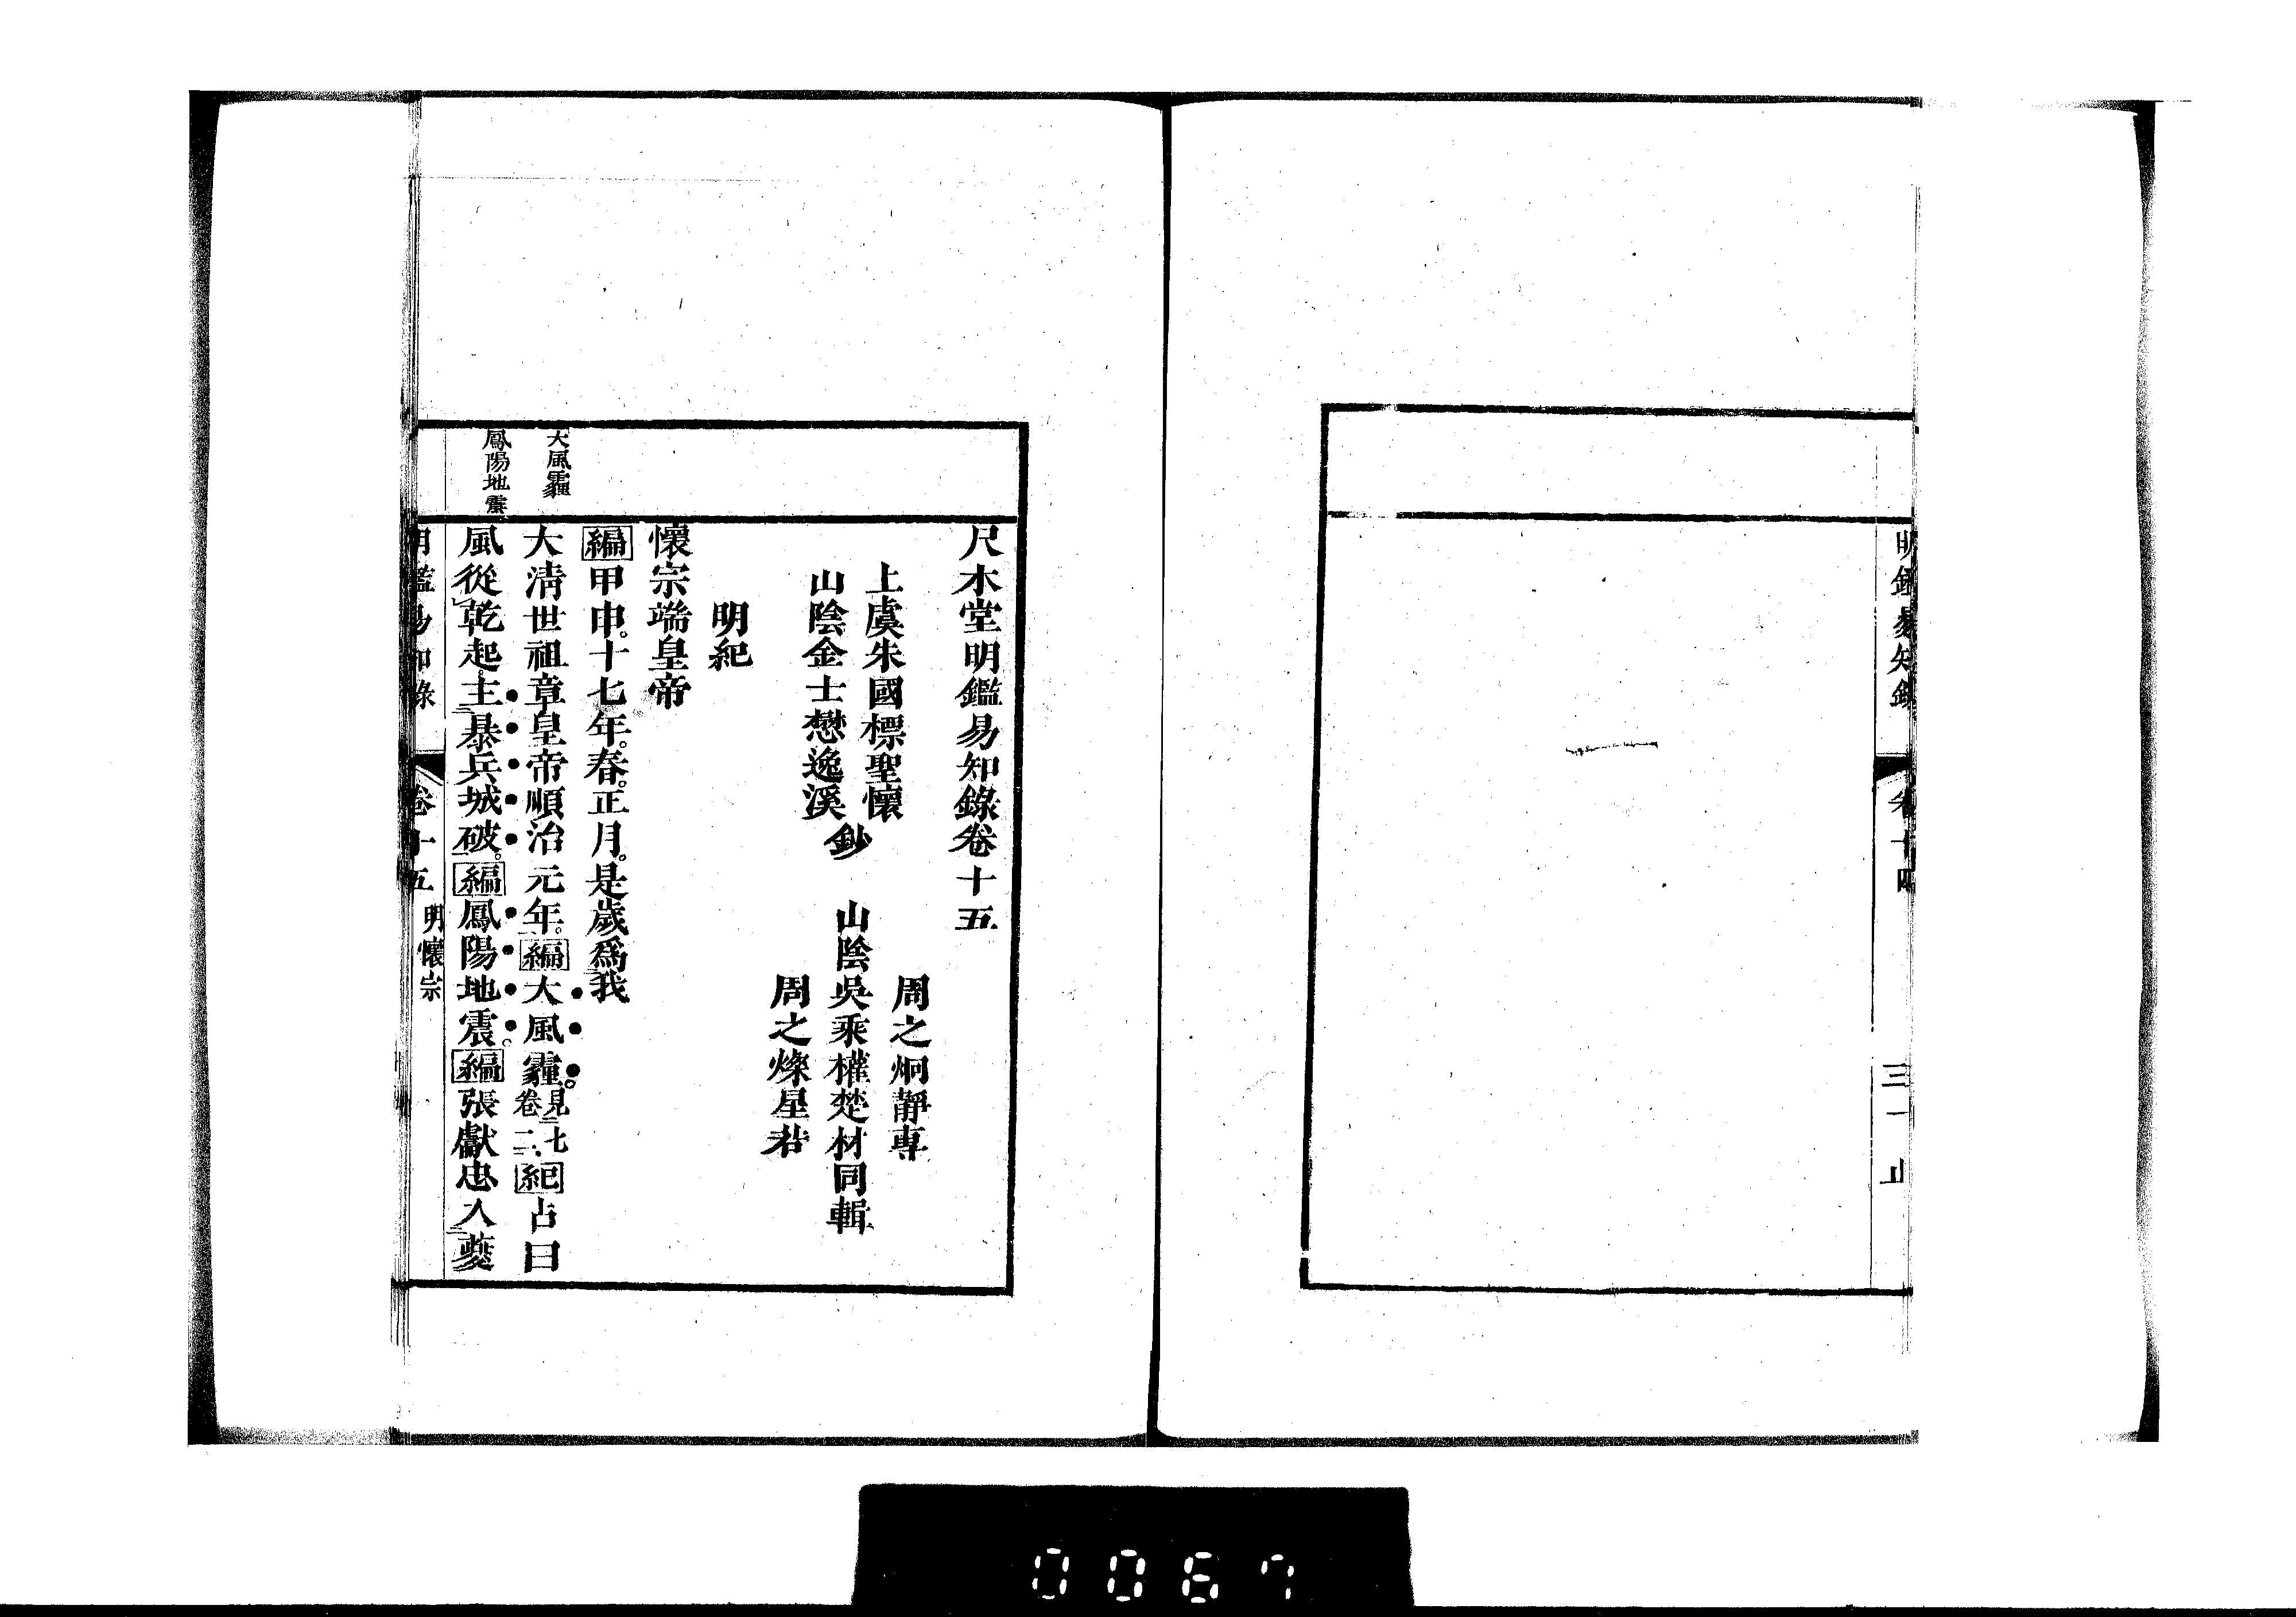 明鑑易知錄
卷十四
三十
止
尺木堂明鑑易知錄卷十五
周之炯靜專
上虞朱國標聖懷
山陰金士懋逸溪
鈔
山陰吳乘權楚材同輯
周之燦星若
明紀
懷宗端皇帝
編甲申。十七年。春。正月。是歲爲我
大淸世祖章皇帝順治元年。編大風霾。見七卷二紀占曰
風從乾起。主暴兵城破。編鳳陽地震。編張獻忠入夔
大風霾
鳳陽地震
明鑑易知錄
卷十五
明懷宗
0067